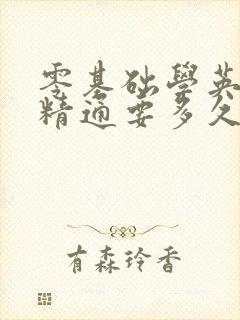 零基础學英
精通要多久
有森玲香